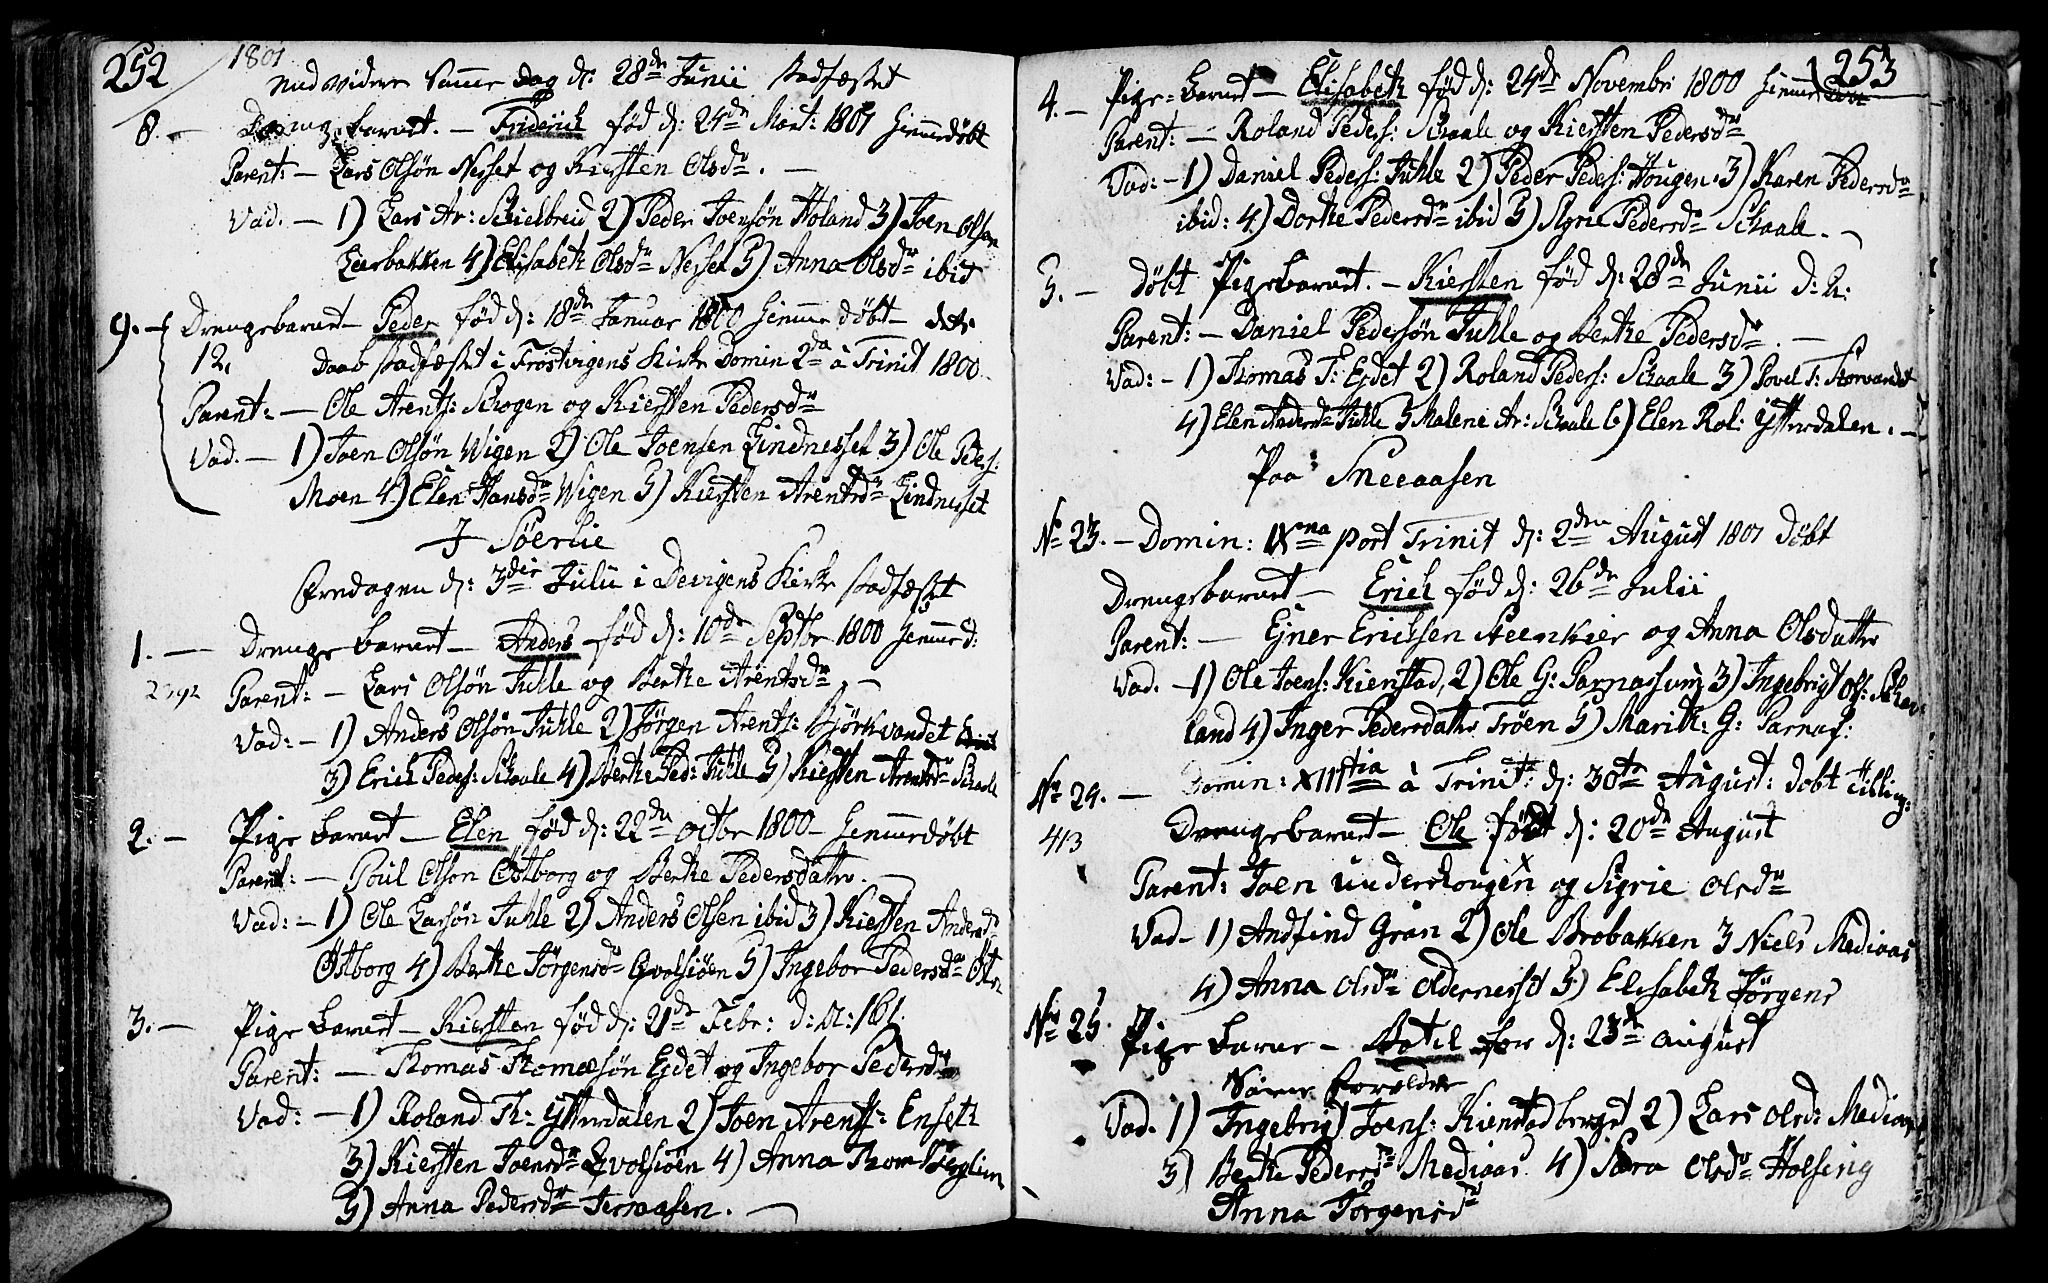 252 1801
nud videre samme dag d: 28de Junii stadfæstet
8. — Drengebarnet. — Friderich fød d: 24de Mart: 1801 hiemmedøbt
Parent: — Lars Olsøn Nesset og Kiersten Olsdr. —
Vad. — 1) Lars Ar: Skielbreid 2) Peder Joensøn Holand 3) Joen Olsen
Leerbakken 4) Elisabeth Olsdr Nesset 5) Anna Olsdr ibid
9. — Drengebarnet — Peder fød d: 18de Januar 1800 hiemmedøbt — dets
12, Daab stadfæstet i Frostvigens Kirke Domin 2da à Trinit 1800.
Parent: — Ole Arents: Skogen og Kiersten Pedersdr
Vad. — 1) Joen Olsøn Wigen 2) Ole Joensen Lindnesset 3) Ole Peders:
Moen 4) Elen Hansdr Wigen 5) Kiersten Arentsdr Lindnesset
I Søerlie
Fredagen d: 3die Julii i Devigens Kirke stadfæstet
1. — Drengebarnet — Anders fød d: 10de Septbr 1800 hiemmed:
Parent: — Lars Olsøn Juhle og Berthe Arentsdr. —
Vad: — 1) Anders Olsøn Juhle 2) Jørgen Arents: Biørkvandet
3) Erich Peders: Skaale 4) Berthe Ped: Juhle 5) Kiersten Arentsdr Skaale
2. — Pigebarnet — Elen fød d: 22de octbr 1800 — hiemmedøbt
Parent: — Poul Olson Østborg og Berthe Pedersdatter. —
Vad: — 1) Ole Larsøn Juhle 2) Anders Olsen ibid 3) Kiersten Andersdr
Østborg 4) Berthe Jørgensdr Qvolsiøen 5) Ingebor Pedersdr
3. — Pigebarnet — Kiersten fød d: 21de Febr: d: A:
Parent: — Thomas Thomæsøn Eydet og Ingebor Pedersdr
Vad: — 1) Roland Th: Ytterdalen 2) Joen Arents: Enseth
3) Kiersten Joensdr Qvolsiøen 4) Anna Thom
5) Anna Pedersdr Jersaasen. —
253
4. — Pige-barnet — Elisabeth fød d: 24de Novembr 1800 hiemmedøbt
Parent: — Roland Peders: Skaale og Kiersten Pedersdr
Vad: — 1) Daniel Peders: Juhle 2) Peder Peders: Hougen 3) Karen Pedersdr
ibid: 4) Dorthe Pedersdr ibid 5) Sigrie Pedersdr Skaale. —
5. — døbt Pigebarnet. — Kiersten fød d: 28de Junii d: A:
Parent: — Daniel Pedersøn Juhle og Berthe Pedersdr. —
Vad: — 1) Thomas T: Eydet 2) Roland Peders: Skaale 3) Povel T: Storvandet
4) Elen Andersdr Juhle 5 Malene Ar: Skaale 6) Elen Rol: Ytterdalen. —
Paa Sneeaasen
No 23. — Domin: IXna post Trinit d: 2den August 1801 døbt
Drengebarnet — Erich fød d: 26de Julii
Parent: — Ejner Ericksen Steenkier og Anna Olsdatter
Vad. — 1) Ole Joens: Kierstad, 2) Ole G: Parnassum 3) Ingebrigt Ols: Skav-
land 4) Inger Pedersdatter Trøen 5) Marith: G: Parnas:
No 24. — Domin: XIIItia à Trinit: d: 30te August: døbt
413 Drengebarnet — Ole født d: 20de August
Parent: Joen underhougen og Sigrie Olsdr
Vad — 1) Andfind Gran 2) Ole Brobakken 3 Niels Mediaas
4) Anna Olsdr Oldernesset 5) Elisabeth Jørgens
No 25. Pige barnet — Botel fød d: 23de august
Vad. 1) Ingebrigt Joens: Kierstadberget 2) Lars Olsd: Mediaas
3) Berthe Pedersdr Mediaas 4) Sara Olsdr Holsing
Anna Jørgensdr